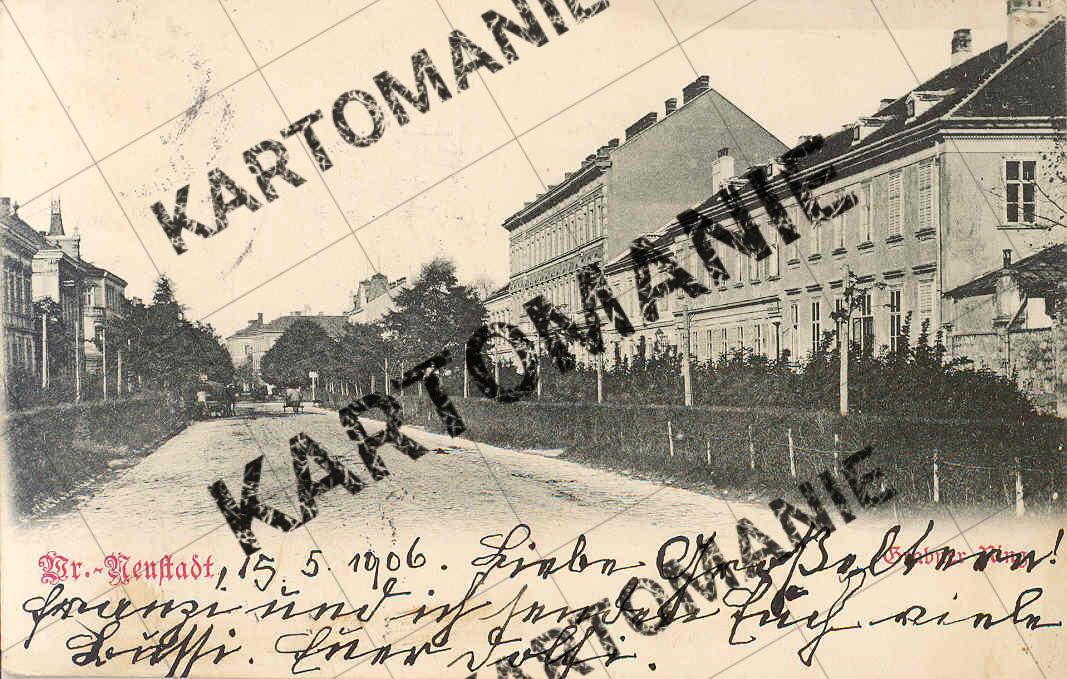 KARTOMANIE
KARTOMANIE
KARTOMANIE
KARTOMANIE
Wr.-Neustadt, 15. 5. 1906. Liebe Großeltern!
Grabner Ring.
Franzi und ich senden Euch viele
Bussi. Euer Dolfi.